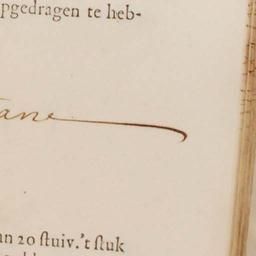 pgedragen te heb-
ane
an 20 ſtuiv. 't ſtuk